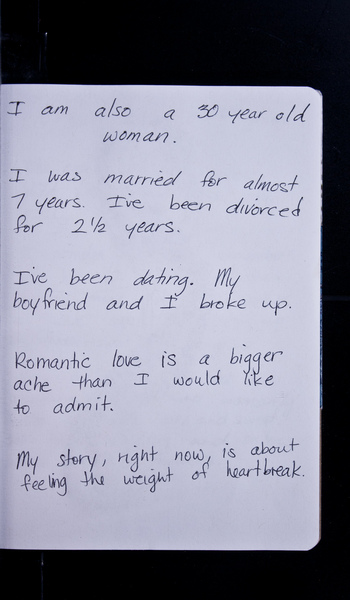 I am also a 30 year old
woman.
I was married for almost
7 years. I've been divorced
for 2 1/2 years.
I've been dating. My
boyfriend and I broke up.
Romantic love is a bigger
ache than I would like
to admit.
My story, right now, is about
feeling the weight of heartbreak.